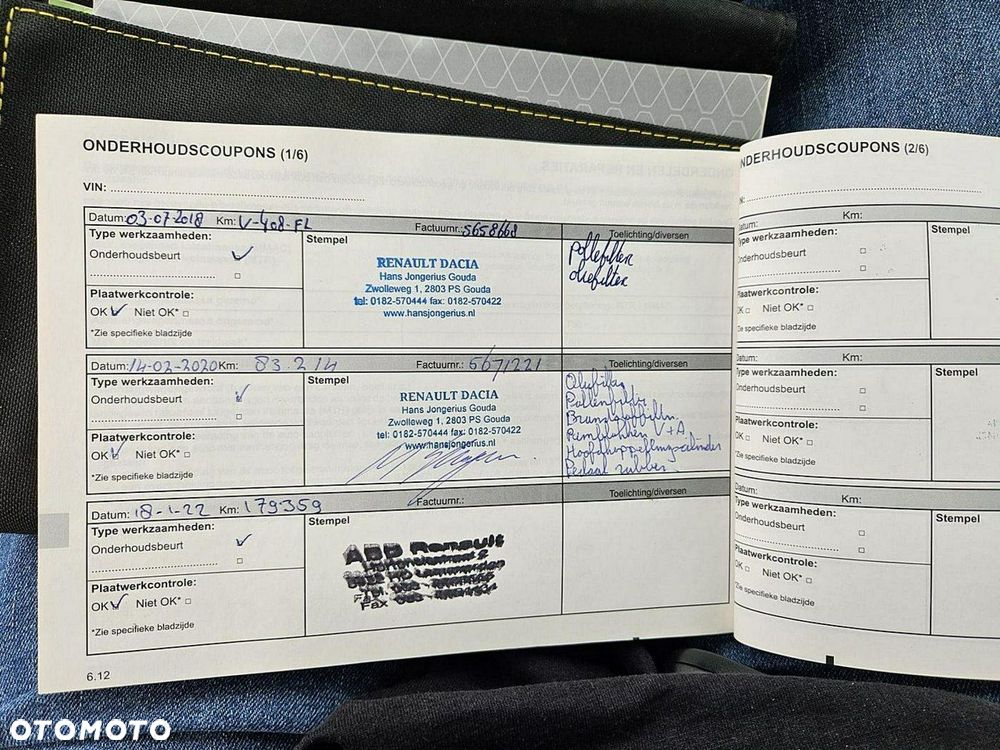 ONDERHOUDSCOUPONS (1/6)
VIN:
Datum: 03-07-2018 Km: V-408-FL Factuurnr.: 5658668 Toelichting/diversen
Type werkzaamheden:
Onderhoudsbeurt
Stempel
RENAULT DACIA
Hans Jongerius Gouda
Zwolleweg 1, 2803 PS Gouda
tel: 0182-570444 fax: 0182-570422
www.hansjongerius.nl
Pollefilter
oliefilter
Plaatwerkcontrole:
OK Niet OK*
*Zie specifieke bladzijde
Datum: 14-02-2020 Km: 83.214 Factuurnr.: 5671221 Toelichting/diversen
Type werkzaamheden:
Onderhoudsbeurt
Stempel
RENAULT DACIA
Hans Jongerius Gouda
Zwolleweg 1, 2803 PS Gouda
tel: 0182-570444 fax: 0182-570422
www.hansjongerius.nl
Remblokken V+A
Pedaal rubber
Plaatwerkcontrole:
OK Niet OK*
*Zie specifieke bladzijde
Datum: 18-1-22 Km: 179359 Factuurnr.: Toelichting/diversen
Type werkzaamheden:
Onderhoudsbeurt
Stempel
ABD Renault
Fax
Plaatwerkcontrole:
OK Niet OK*
*Zie specifieke bladzijde
6.12
NDERHOUDSCOUPONS (2/6)
N:
Datum: Km:
Type werkzaamheden:
Onderhoudsbeurt
Stempel
Plaatwerkcontrole:
OK Niet OK*
*Zie specifieke bladzijde
Datum: Km:
Type werkzaamheden:
Onderhoudsbeurt
Stempel
Plaatwerkcontrole:
OK Niet OK*
*Zie specifieke bladzijde
Datum: Km:
Type werkzaamheden:
Onderhoudsbeurt
Stempel
Plaatwerkcontrole:
OK Niet OK*
*Zie specifieke bladzijde
OTOMOTO